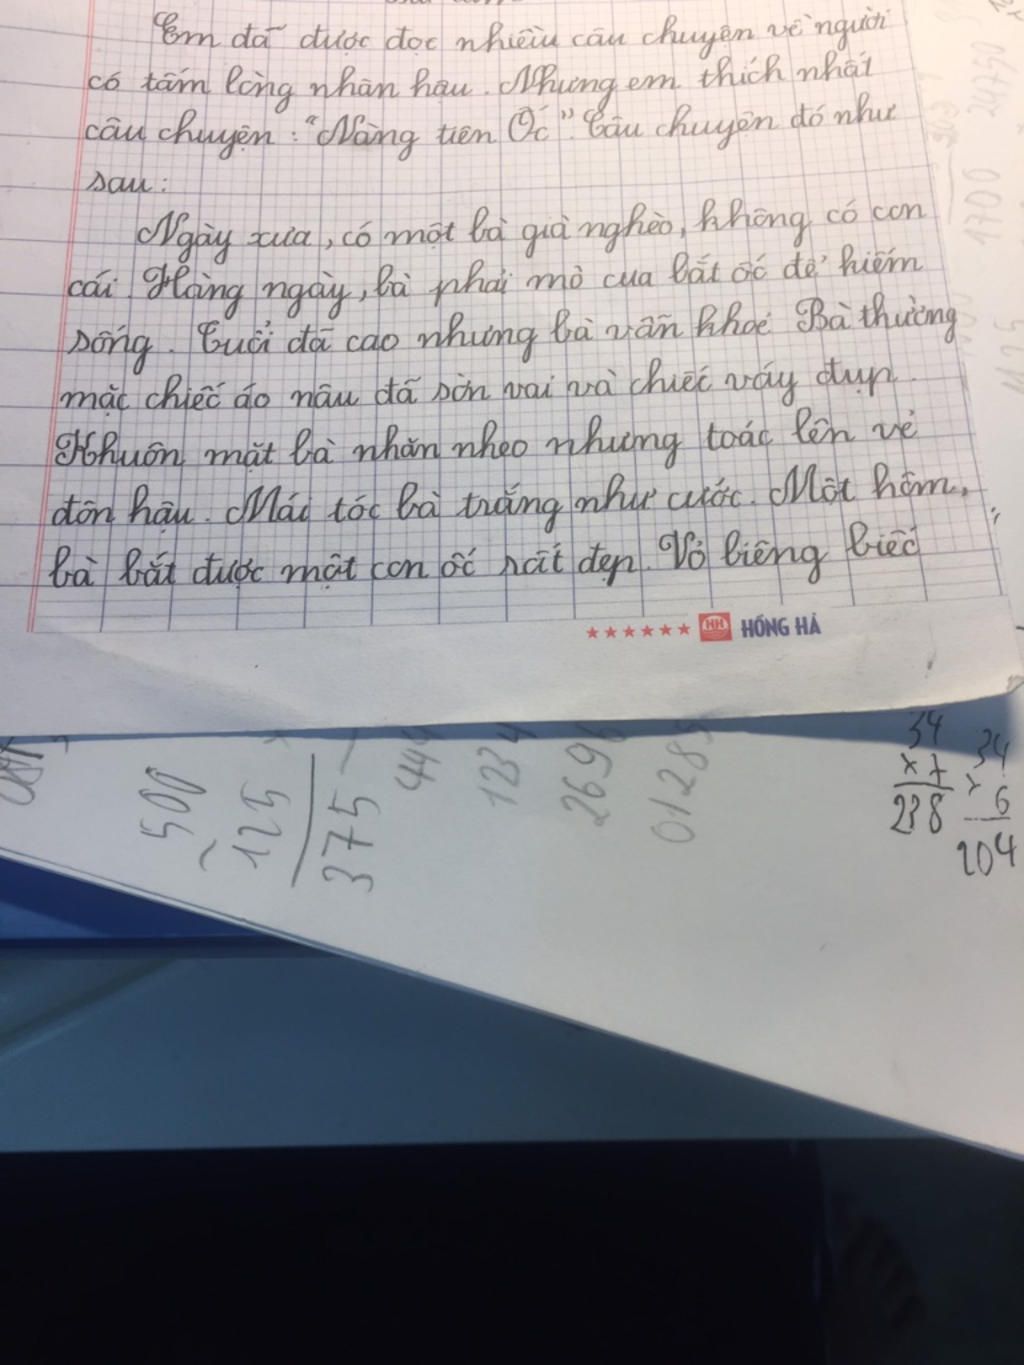 Em đã được đọc nhiều câu chuyện về người
có tấm lòng nhân hậu. Nhưng em thích nhất
câu chuyện: "Nàng tiên Ốc". Câu chuyện đó như
sau:
Ngày xưa, có một bà già nghèo, không có con
cái. Hàng ngày, bà phải mò cua bắt ốc để kiếm
sống. Tuổi đã cao nhưng bà vẫn khoẻ. Bà thường
mặc chiếc áo nâu đã sờn vai và chiếc váy đụp.
Khuôn mặt bà nhăn nheo nhưng toác lên vẻ
đôn hậu. Mái tóc bà trắng như cước. Một hôm,
bà bắt được một con ốc rất đẹp. Vỏ biêng biếc
HH HỒNG HÀ
500
125
375
444
1234
2696
0128
34
x 7
238
34
x 6
204
1700
24+50